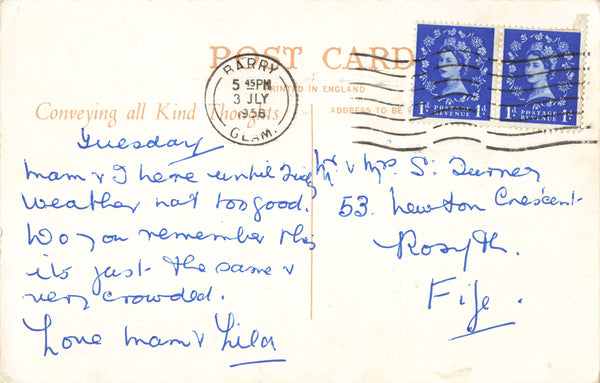 POST CARD
PRINTED IN ENGLAND
Conveying all Kind Thoughts
ADDRESS TO BE
BARRY
5 45PM
3 JLY
1956
GLAM.
1D POSTAGE REVENUE 1D
1D POSTAGE REVENUE 1D
Tuesday
Mam & I here until Friday
weather not too good.
Do you remember this
its just the same &
very crowded.
Love Mam & Lila
Mr & Mrs S. Turner
53. Newton Crescent
Rosyth.
Fife.